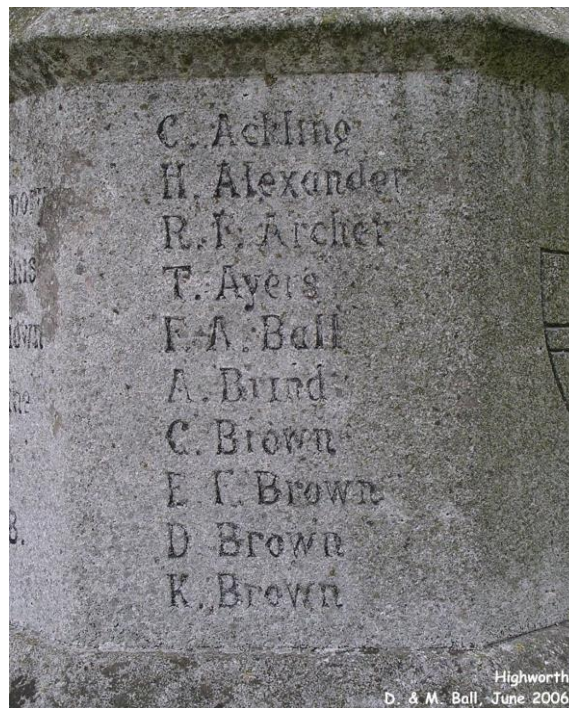 C. Ackling
H. Alexander
R. F. Archer
T. Ayers
F. A. Ball
A. Brind
C. Brown
E. F. Brown
D. Brown
K. Brown
Highworth
D. & M. Ball, June 2006